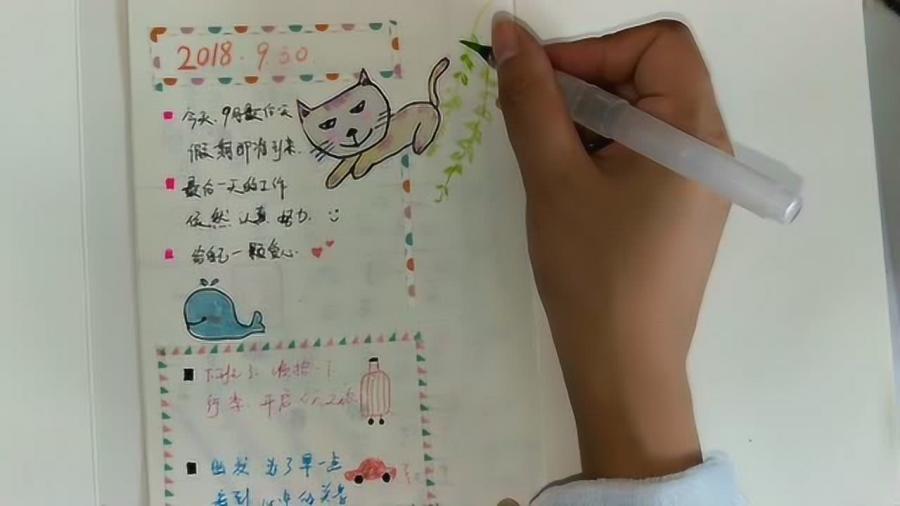 2018.9.30
今天.9月最后一天
假期即将到来.
最后一天的工作
依然认真努力.
给自己一颗爱心
下班了.收拾一下
行李.开启
出发 为了早一点
看到 的美景